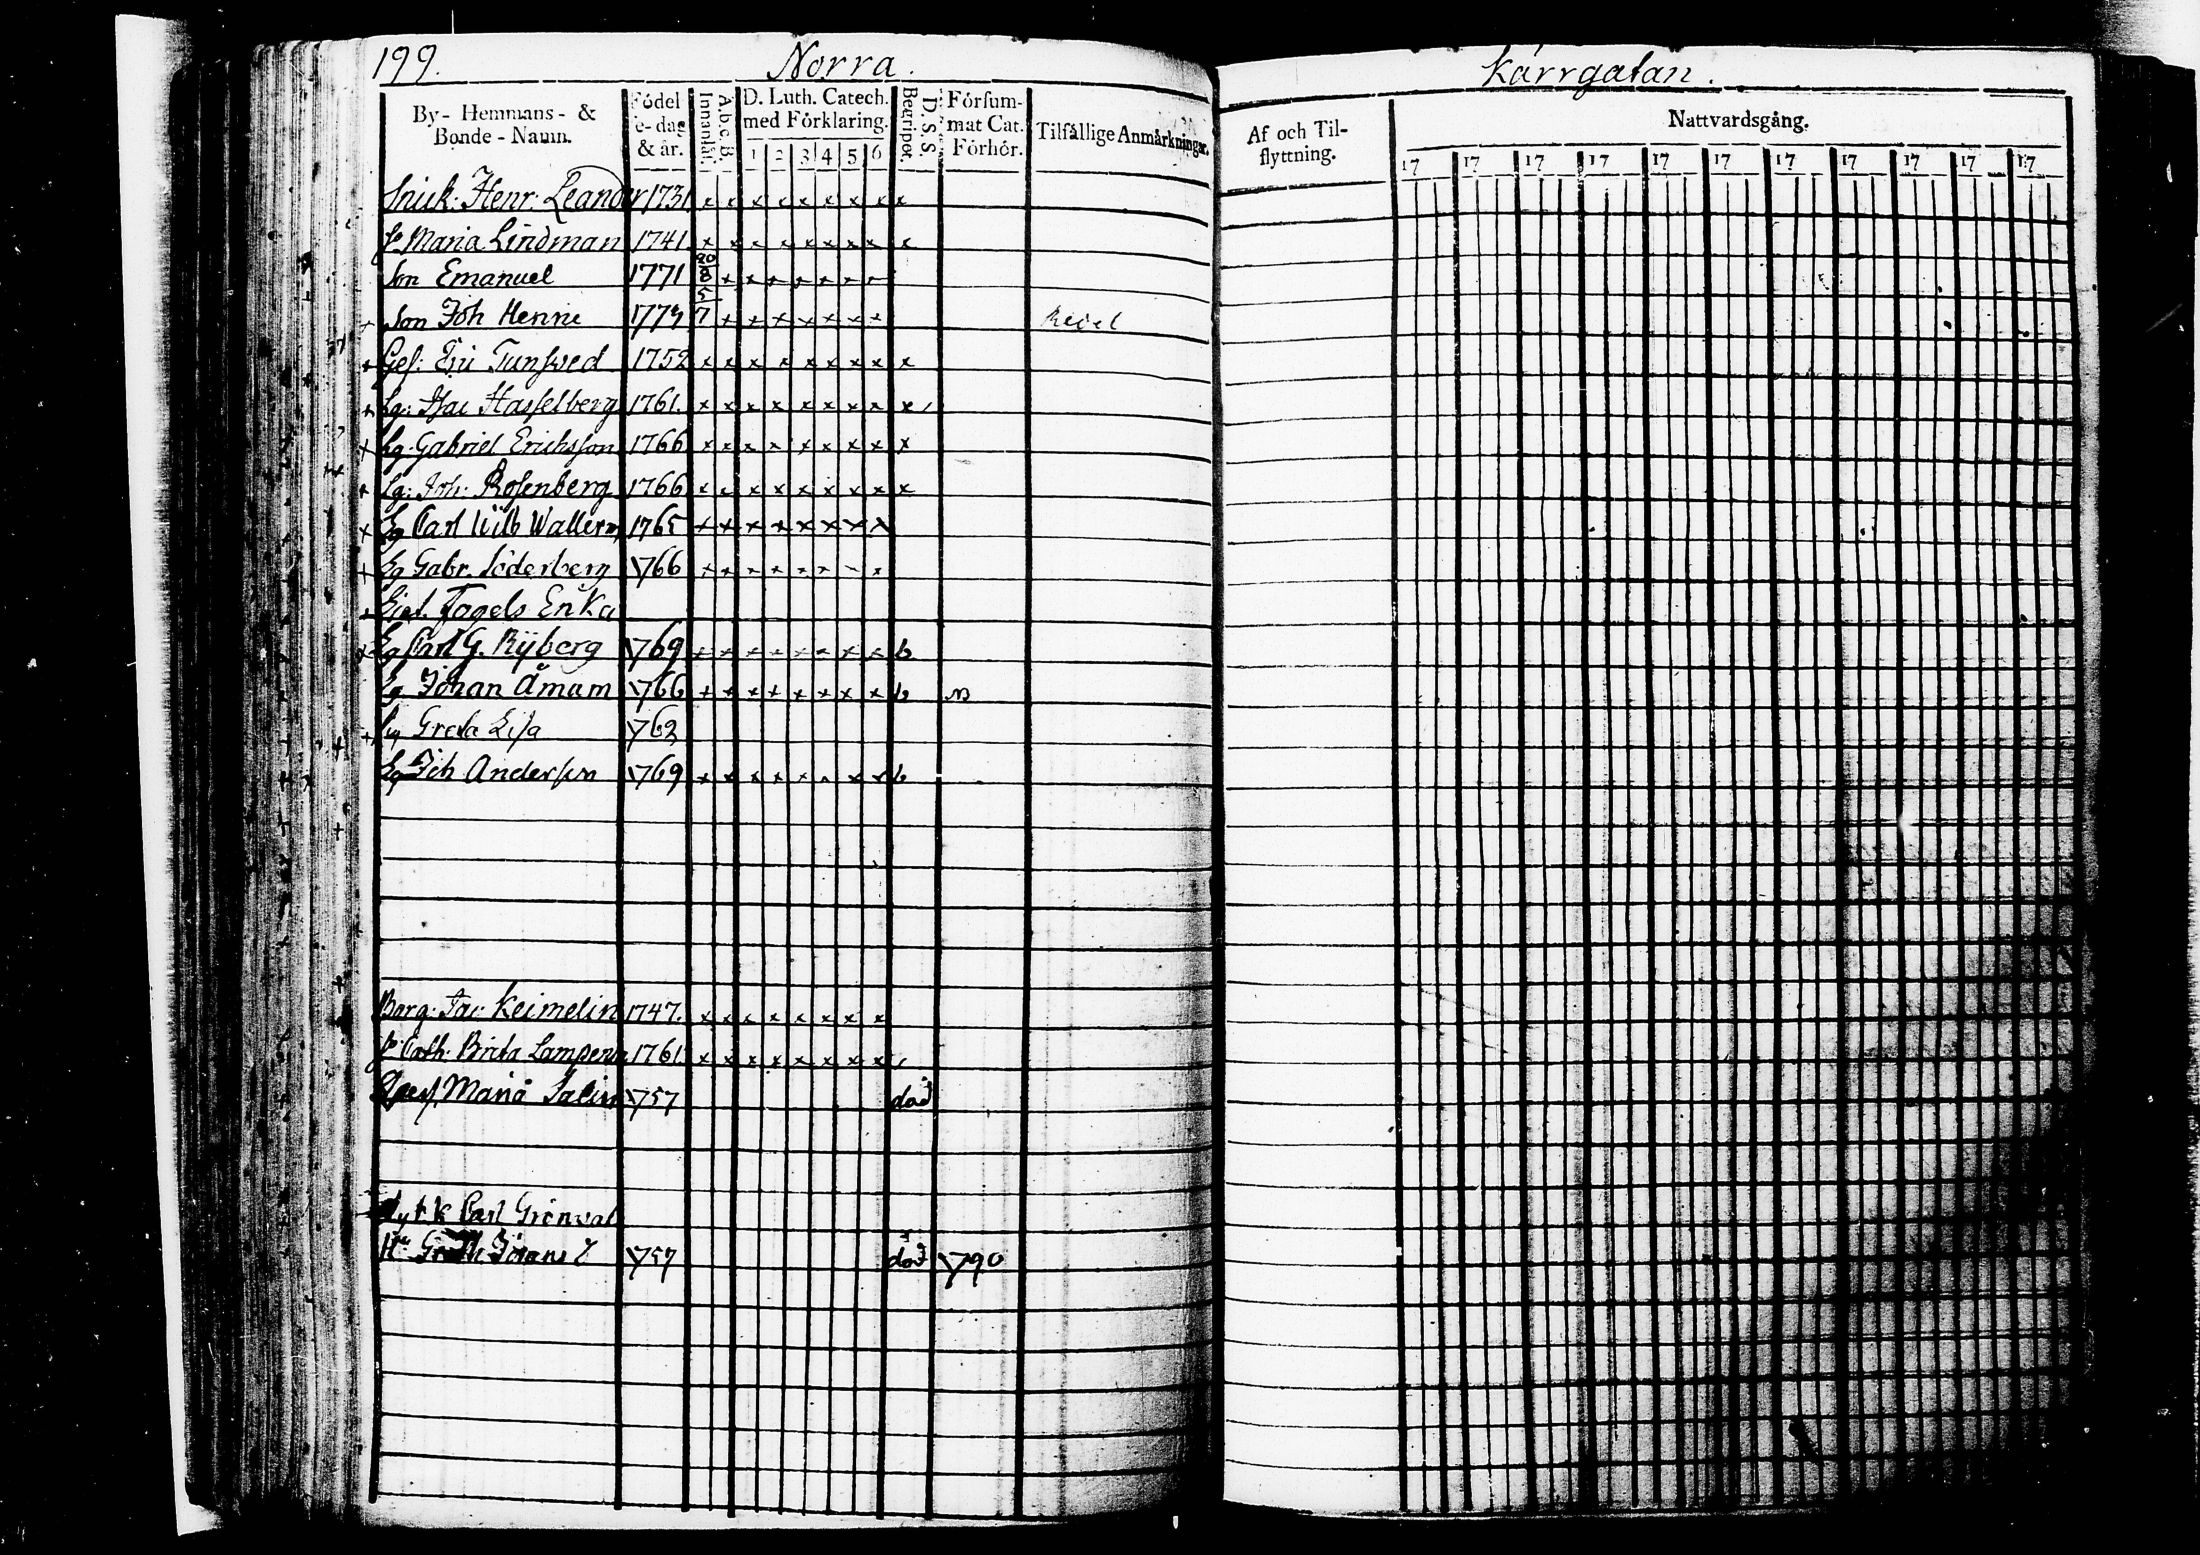 199. Norra. Kärrgatan.
By- Hemmans- & Bonde-Namn.
Födelse-dag & år.
Innanläs.
A.b.c.B.
D. Luth. Catech. med Förklaring.
1 2 3 4 5 6
Begripet.
D. S. S.
Försum- mat Cat. Förhör.
Tilfällige Anmärkningar.
Af och Til- flyttning.
Nattvardsgång.
17 17 17 17 17 17 17 17 17 17 17
Snick: Henr: Leander 1731 x x x x x x x x x
h: Maria Lindman 1741. x x x x x x x x x
Son Emanuel 1771 20/8 x x x x x x x
Son Joh Henric 5/7 x x x x x x x
Ges: Tunsved 1752 x x x x x x x x x
Lg: Isac Hasselberg 1761. x x x x x x x x x
Lg: Gabriel Erichsson 1766 x x x x x x x x x
Lg: Joh: Rosenberg 1766 x x x x x x x x x
Lg Carl Wilh Wallerm 1765 x x x x x x x x
Lg Gabr. Söderberg 1766 x x x x x x x x
Fogels Enka
Lg Carl G. Ryberg 1769 x x x x x x x x b
Lg Johan Åmam 1766 x x x x x x x x b
Greta Lisa 1762
Lg Joh Anderssn 1769 x x x x x x x x b
Borg: Jac: Keimelin 1747. x x x x x x x x
h: Cath: Brita 1761 x x x x x x x x
Maria Salin 1757 död
Carl Grönval
1757 död 1790